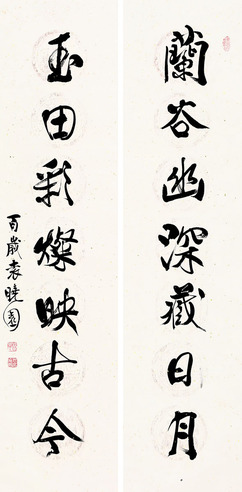 蘭谷幽深藏日月
玉田彩燦映古今
百歲袁曉園